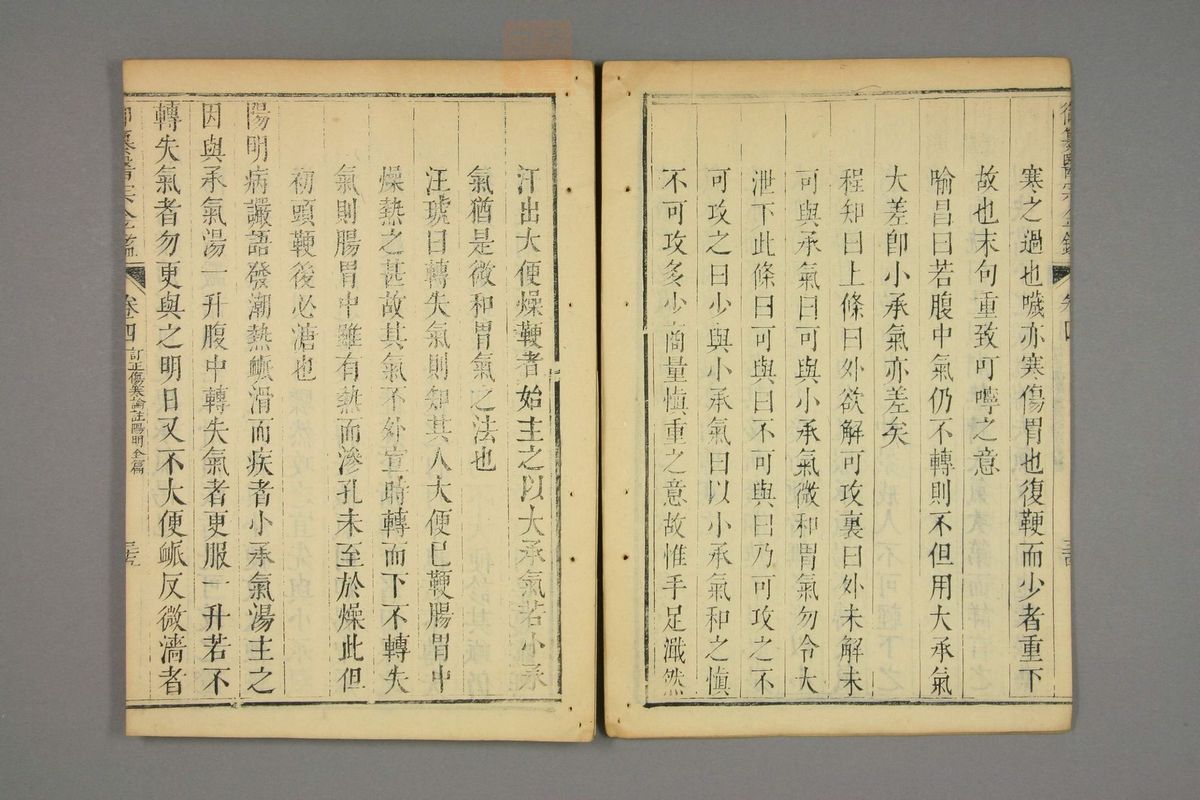 御纂醫宗金鑑
卷四
寒之過也噦亦寒傷胃也復鞕而少者重下
故也末句重致可嚀之意
喻昌曰若腹中氣仍不轉則不但用大承氣
大差卽小承氣亦差矣
程知曰上條曰外欲解可攻裏曰外未解未
可與承氣曰可與小承氣微和胃氣勿令大
泄下此條曰可與曰不可與曰乃可攻之不
可攻之曰少與小承氣曰以小承氣和之愼
不可攻多少商量愼重之意故惟手足濈然
汗出大便燥鞕者始主之以大承氣若小承
氣猶是微和胃氣之法也
汪琥曰轉失氣則知其人大便已鞕腸胃中
燥熱之甚故其氣不外宣時轉而下不轉失
氣則腸胃中雖有熱而滲孔未至於燥此但
初頭鞕後必溏也
陽明病讝語發潮熱䘑滑而疾者小承氣湯主之
因與承氣湯一升腹中轉失氣者更服一升若不
轉失氣者勿更與之明日又不大便䘑反微濇者
御纂醫宗金鑑
卷四
訂正傷寒論註陽明全篇